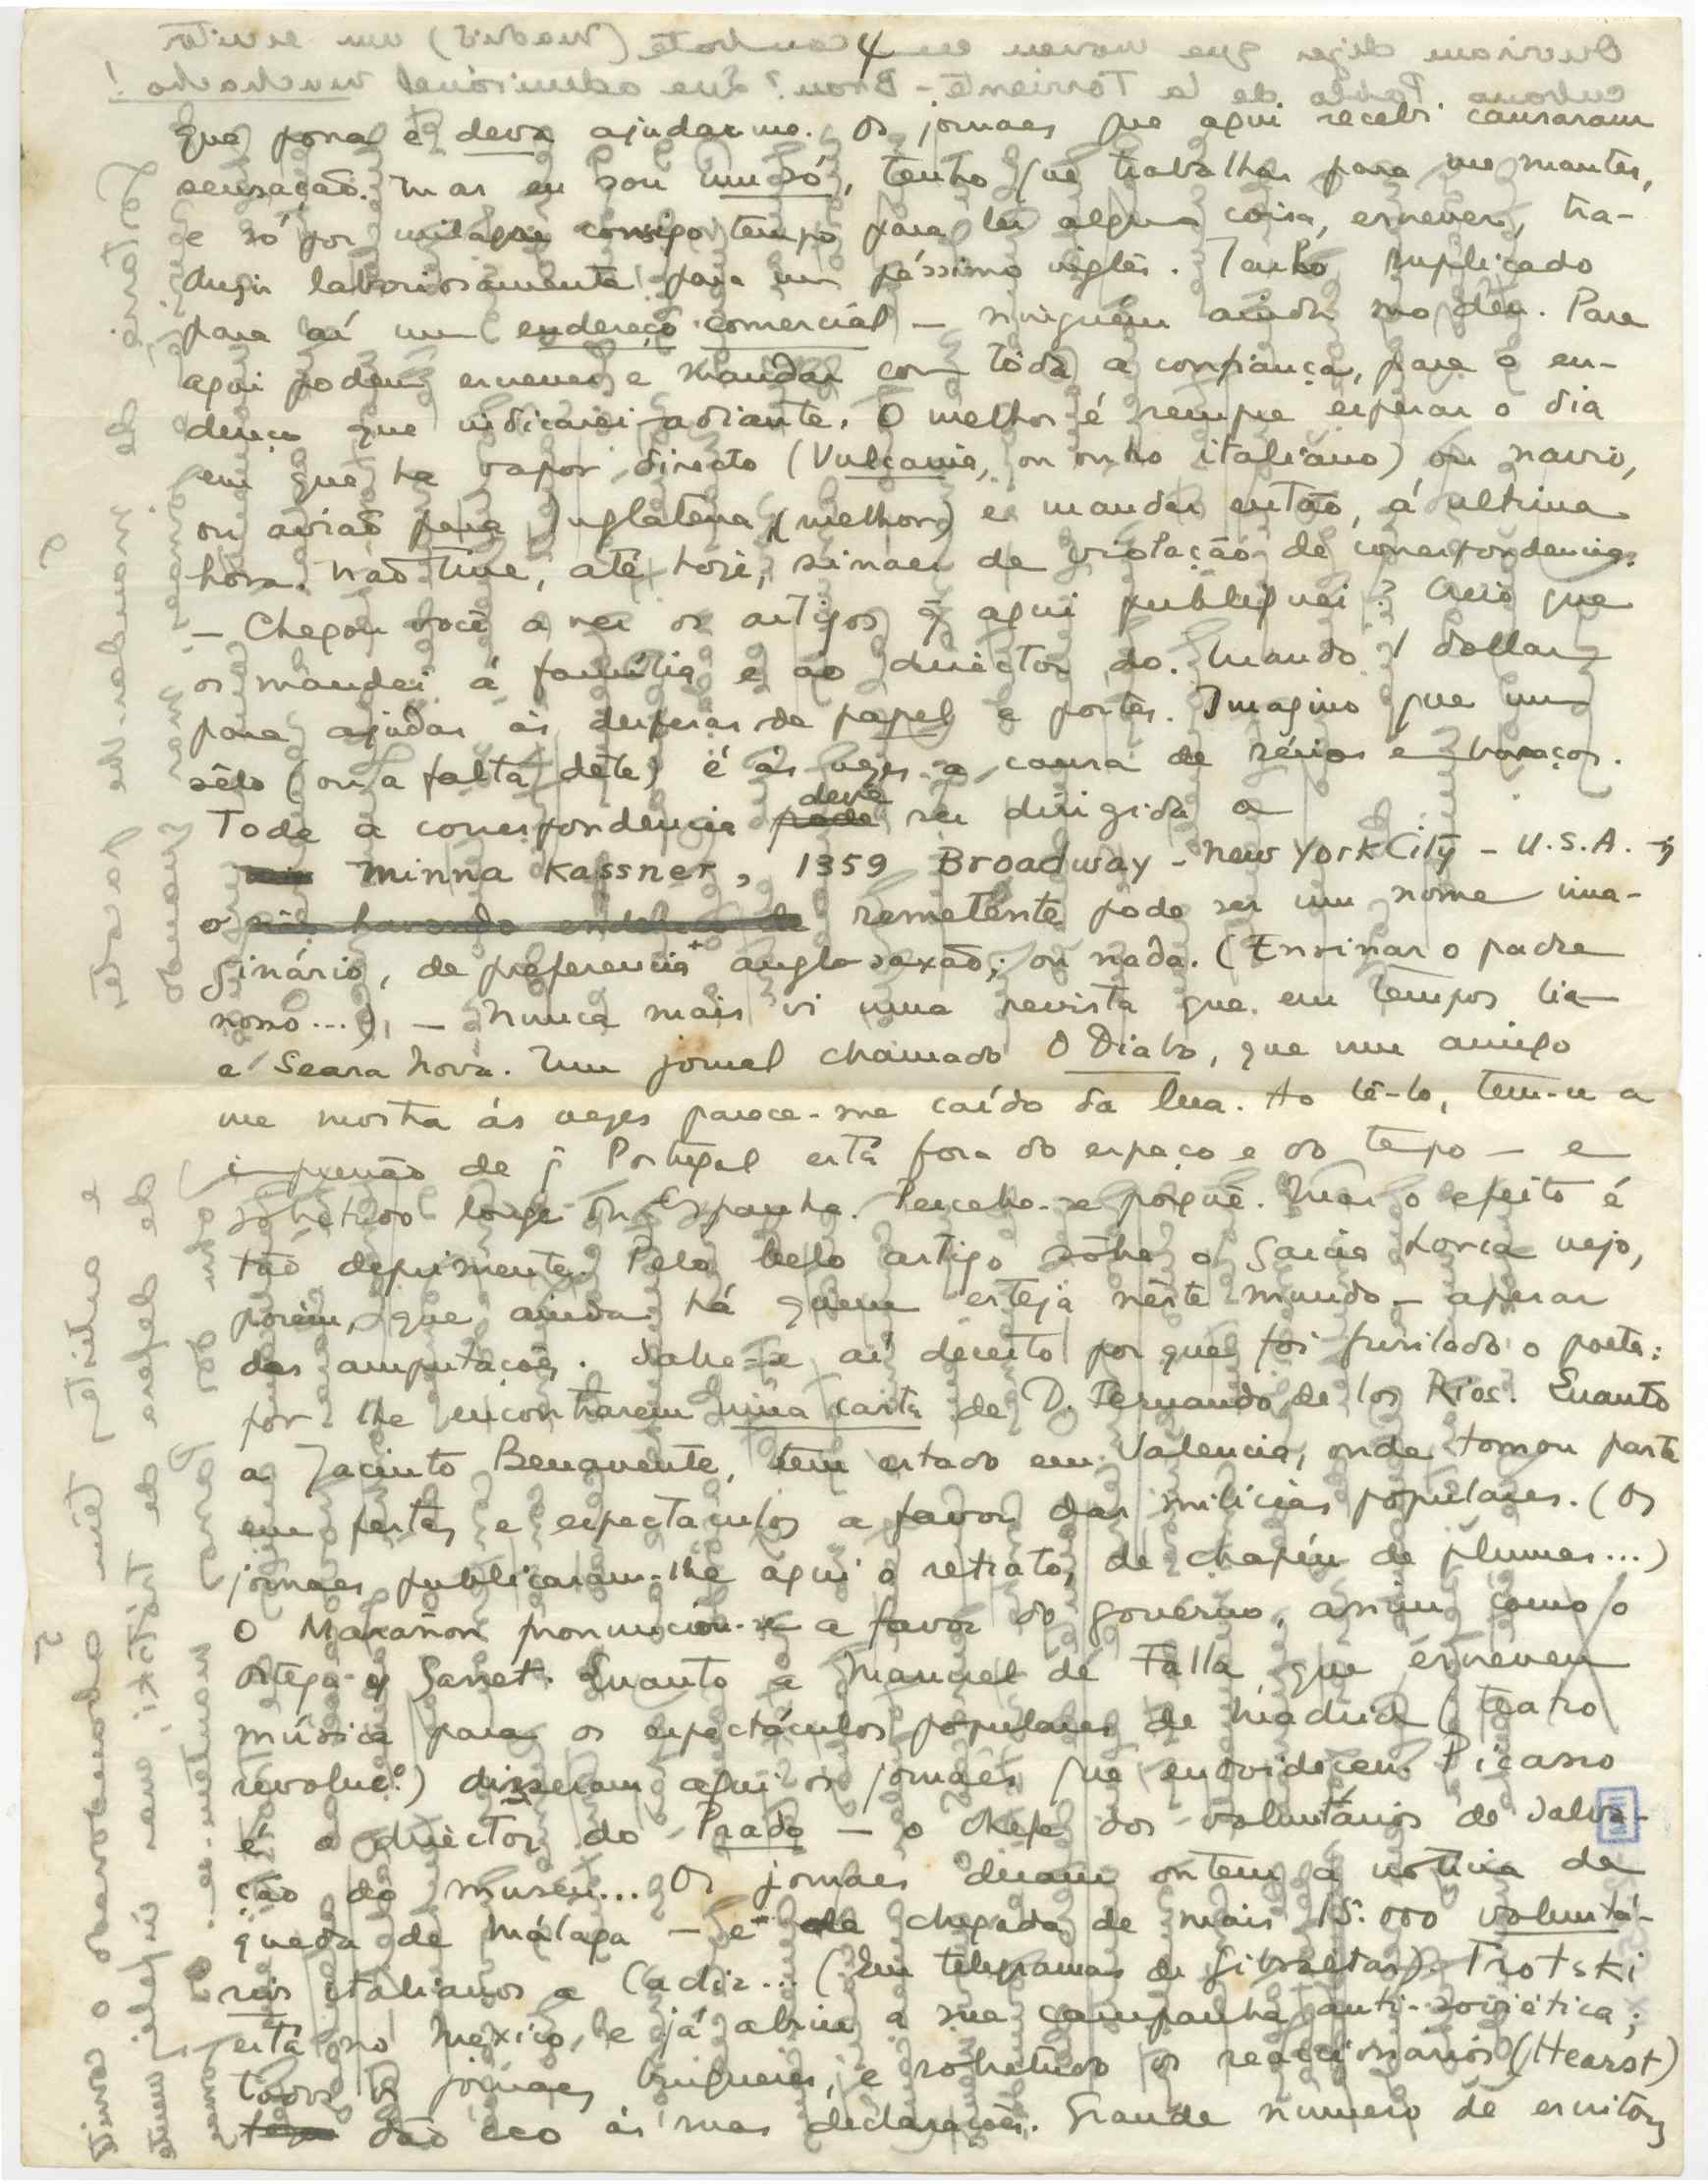 4
que possa e deva ajudar-me. Os jornaes que aqui recebi causaram
sensação. Mas eu sou um só, tenho que trabalhar para me manter,
e só por milagre consigo tempo para ler alguma coisa, escrever, tra-
duzir laboriosamente para um péssimo inglês. Tenho suplicado
para aí um endereço comercial — ninguém ainda mo deu. Para
aqui podem escrever e mandar com tôda a confiança, para o en-
dereço que indicarei adiante. O melhor é sempre esperar o dia
em que ha vapor directo (Vulcania, ou outro italiano) ou navio,
ou avião para Inglaterra (melhor) e mandar então, á ultima
hora. Não tive, até hoje, sinaes de violação de correspondencia.
— Chegou você a ver os artigos q̃ aqui publiquei? Creio que
os mandei á família e ao director do. Mando 1 dollar
para ajudar ás despesas de papel e portes. Imagino que um
sêlo (ou a falta dêle) é ás vezes a causa de sérios embaraços.
Toda a correspondencia deve ser dirigida a
Minna Kassner, 1359 Broadway - New York City - U.S.A. -
o remetente pode ser um nome ima-
ginário, de preferencia anglo-saxão; ou nada. (Ensinar o padre
nosso...). — Nunca mais vi uma revista que em tempos lia
a Seara Nova. Um jornal chamado O Diabo, que um amigo
me mostra ás vezes parece-me caído da lua. Ao lê-lo, tem-se a
impressão de q̃ Portugal está fora do espaço e do tempo — e
sobretudo longe da Espanha. Percebe-se porquê. Mas o efeito é
tão deprimente. Pelo belo artigo sôbre o Garcia Lorca vejo,
porém, que ainda há quem esteja nêste mundo — apesar
das amputações. Sabe-se aí decerto por que foi fusilado o poeta:
por lhe encontrarem uma carta de D. Fernando de los Rios. Quanto
a Jacinto Benavente, tem estado em Valencia, onde tomou parte
em festas e espectaculos a favor das milicias populares. (Os
jornaes publicaram-lhe aqui o retrato, de chapéu de plumas...)
O Marañon pronunciou-se a favor do governo, assim como o
Ortega y Gasset. Quanto a Manuel de Falla que escreveu
música para os espectáculos populares de Madrid (teatro
revoluc.º) disseram aqui os jornaes que enlouqueceu. Picasso
é o director do Prado — o chefe dos voluntários de salva-
ção do museu... Os jornaes deram ontem a noticia da
queda de Málaga — e da chegada de mais 15.000 voluntá-
rios italianos a Cadiz... (Em telegramas de Gibraltar). Trotski
está no Mexico, e já abriu a sua campanha anti-soviética;
todos os jornaes burgueses, e sobretudo os reaccionários (Hearst)
dão eco ás suas declarações. Grande número de escritores